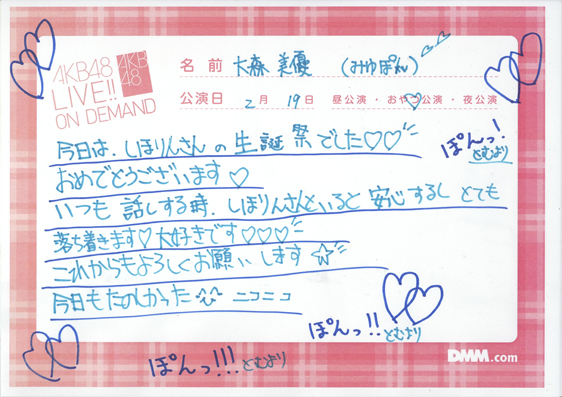 AKB48
LIVE!!
ON DEMAND
AKB
48
名前 大森美優 (みゆぽん)
公演日 2月19日 昼公演・おやつ公演・夜公演
今日は、しほりんさんの生誕祭でした♡♡
おめでとうございます♡
いつも話しする時、しほりんさんといると安心するし とても
落ち着きます♡大好きです♡♡♡
これからもよろしくお願いします☆
今日もたのしかった ニコニコ
ぽんっ!
とむより
ぽんっ!!とむより
ぽんっ!!!とむより
DMM.com